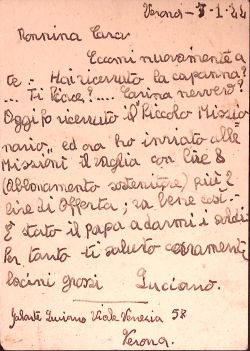 Verona - 5-1-44
Nonnina Cara
Eccomi nuovamente a
te - Hai ricevuto la capanna?
... Ti piace?.... Carina nevvero?
Oggi ho ricevuto il "Piccolo Missio
nario", ed ora ho inviato alle
Missioni il vaglia con lire 8
(Abbonamento sostenitore) più 2
lire di Offerta; va bene così.-
È stato il papà a darmi i soldi
Per tanto ti saluto caramente
bacini grossi Luciano.
Luciano Viale Venezia 58
Verona.